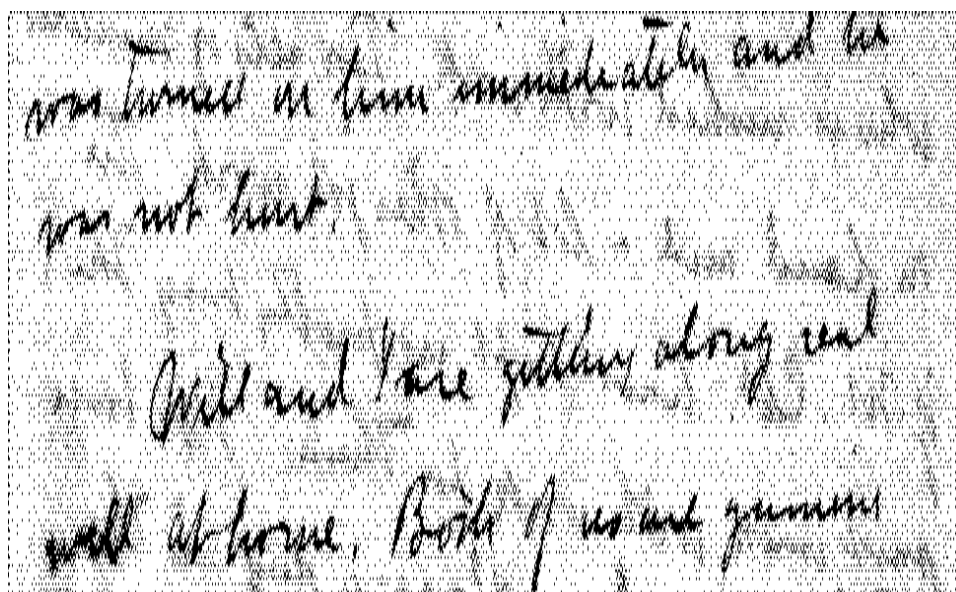 was turned in him immediately and he
was not hurt.
Will and I are getting along real
well at home. Both of us are